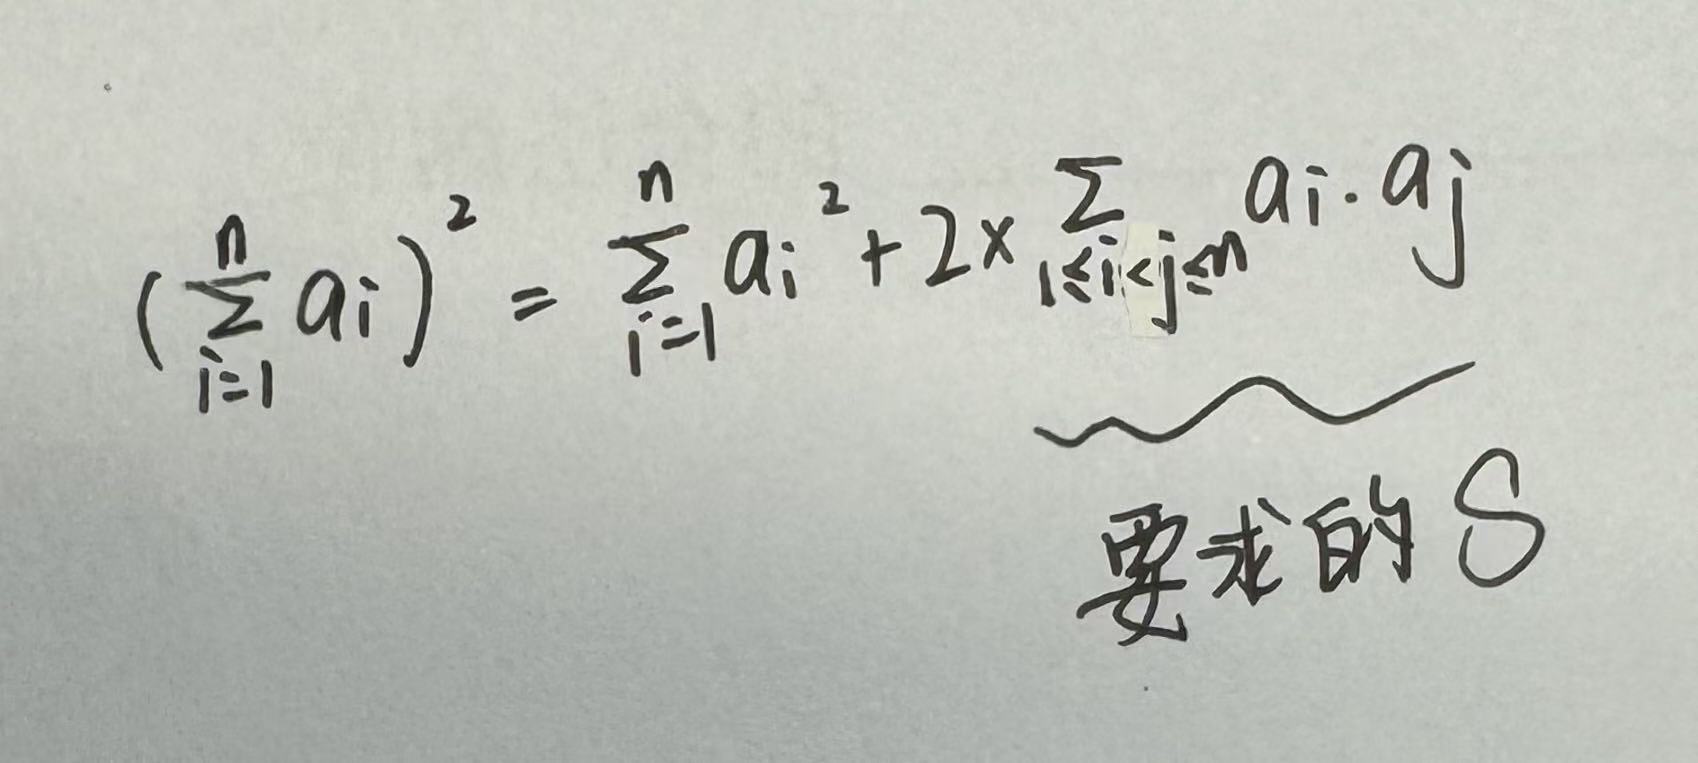 (∑_{i=1}^{n} ai)² = ∑_{i=1}^{n} ai² + 2× ∑_{1≤i<j≤n} ai·aj
要求的 S